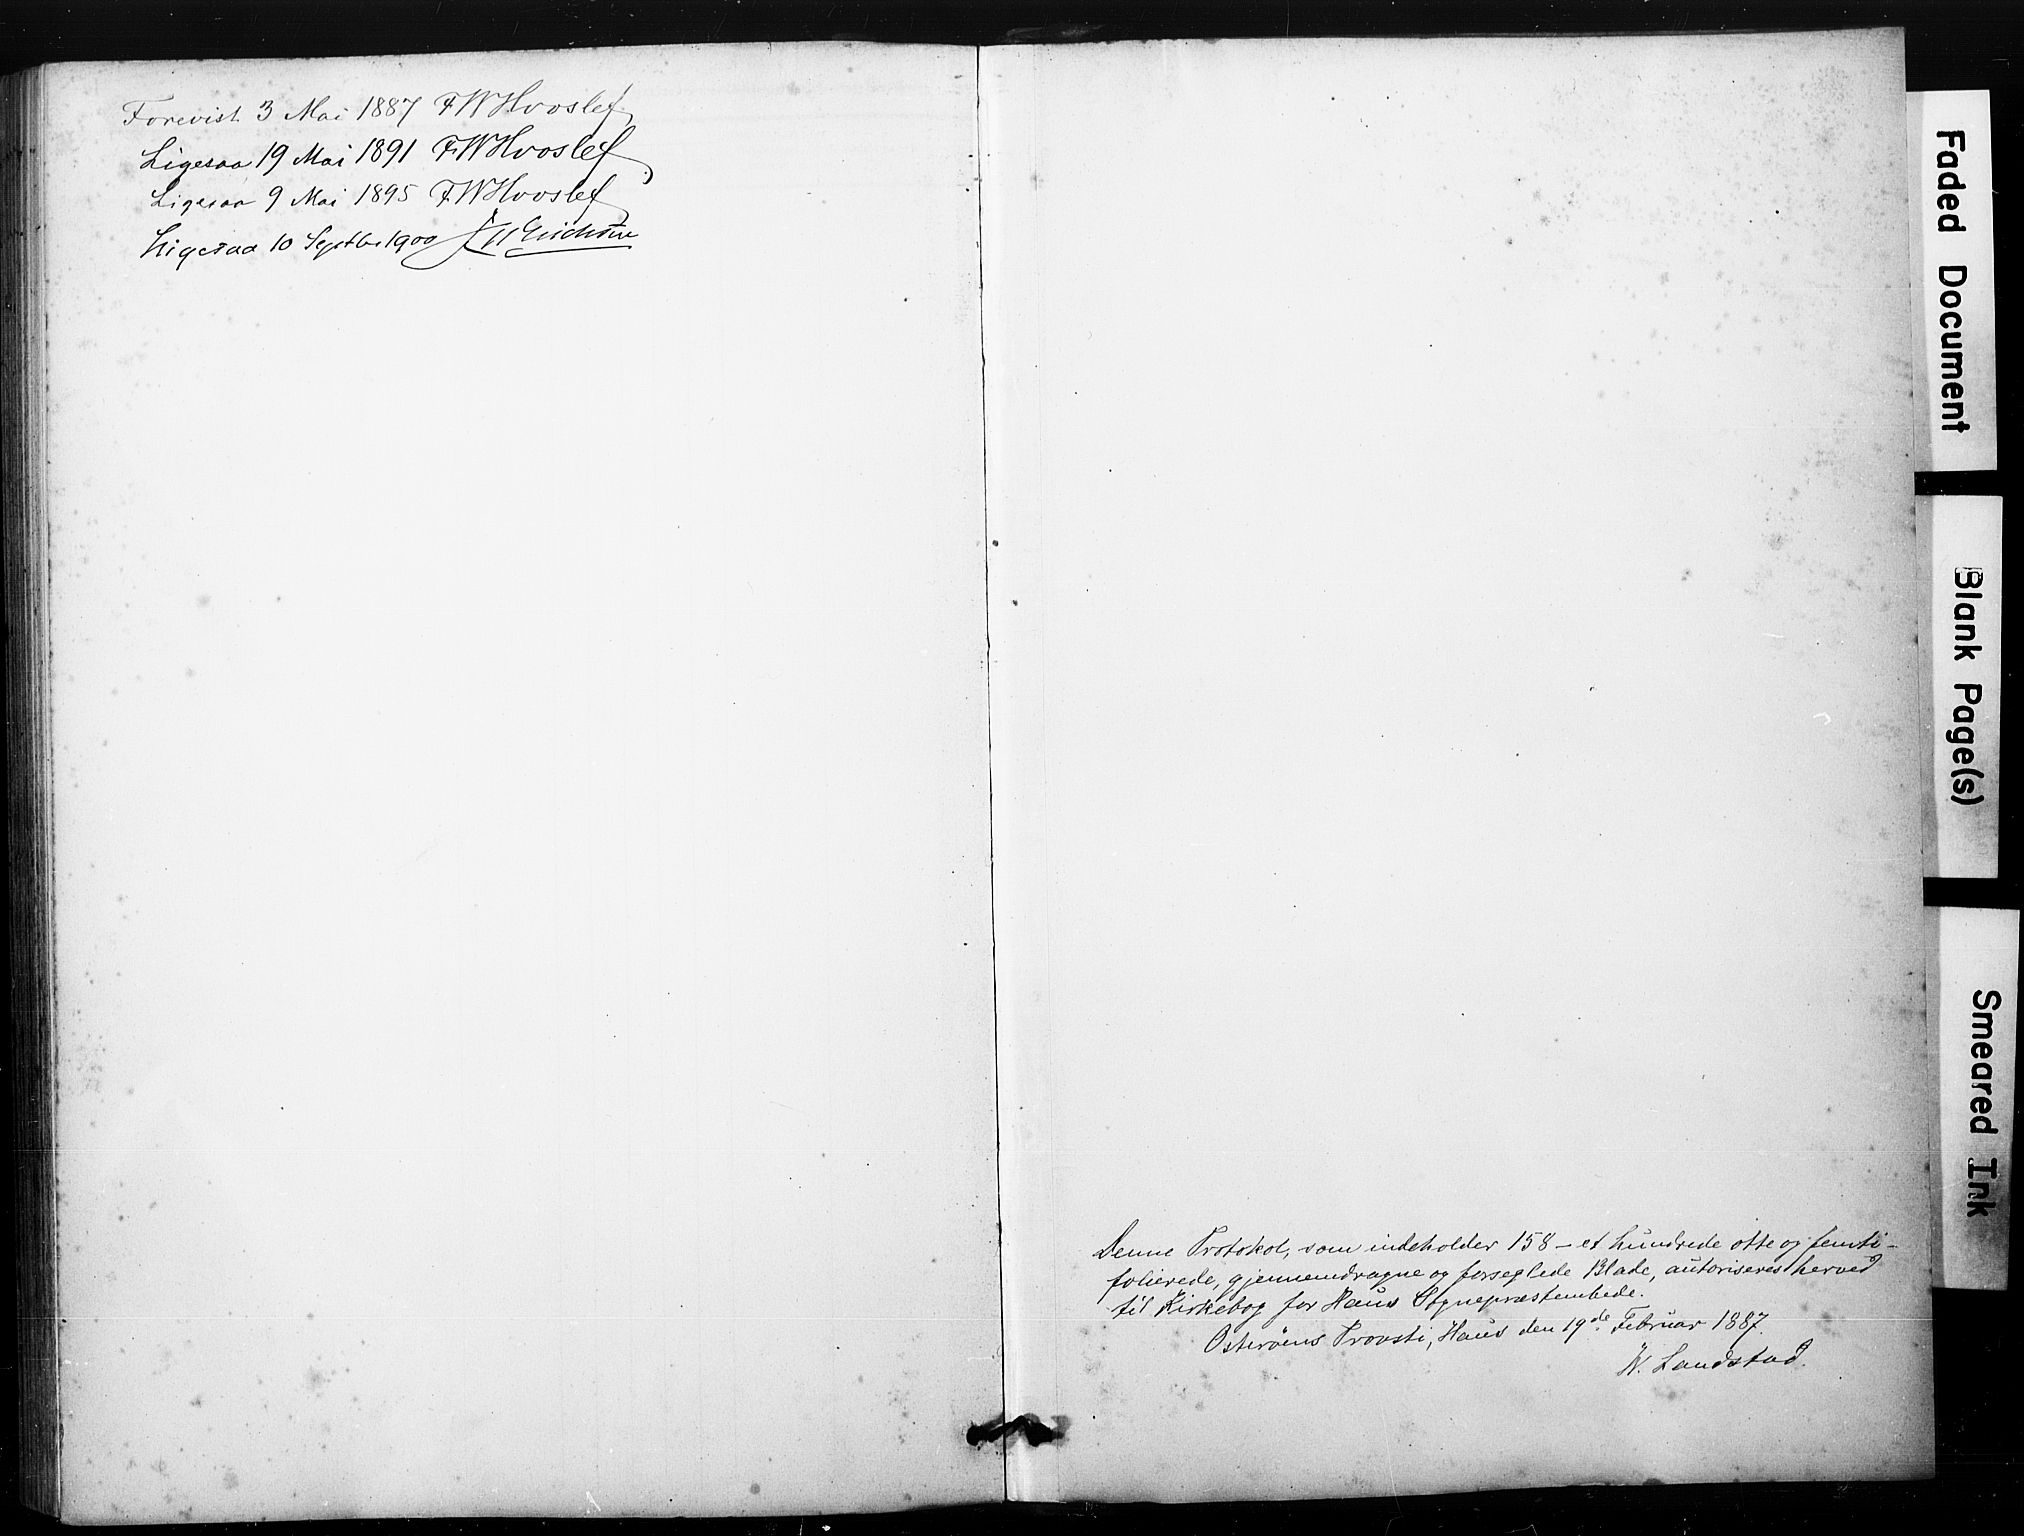 Forevist 3 Mai 1887 FWHvoslef
Ligesaa 19 Mai 1891 FWHvoslef
Ligesaa 9 Mai 1895 FWHvoslef
Ligesaa 10 Septbr 1900
Denne Protokol, som indeholder 158 – et hundrede otte og femti –
folierede, gjennemdragne og forseglede Blade, autoriseres herved
til Kirkebog for Haus Sognepræstembede.
Osterøens Provsti, Haus den 19de Februar 1887.
W. Landstad.
Faded Document
Blank Page(s)
Smeared Ink